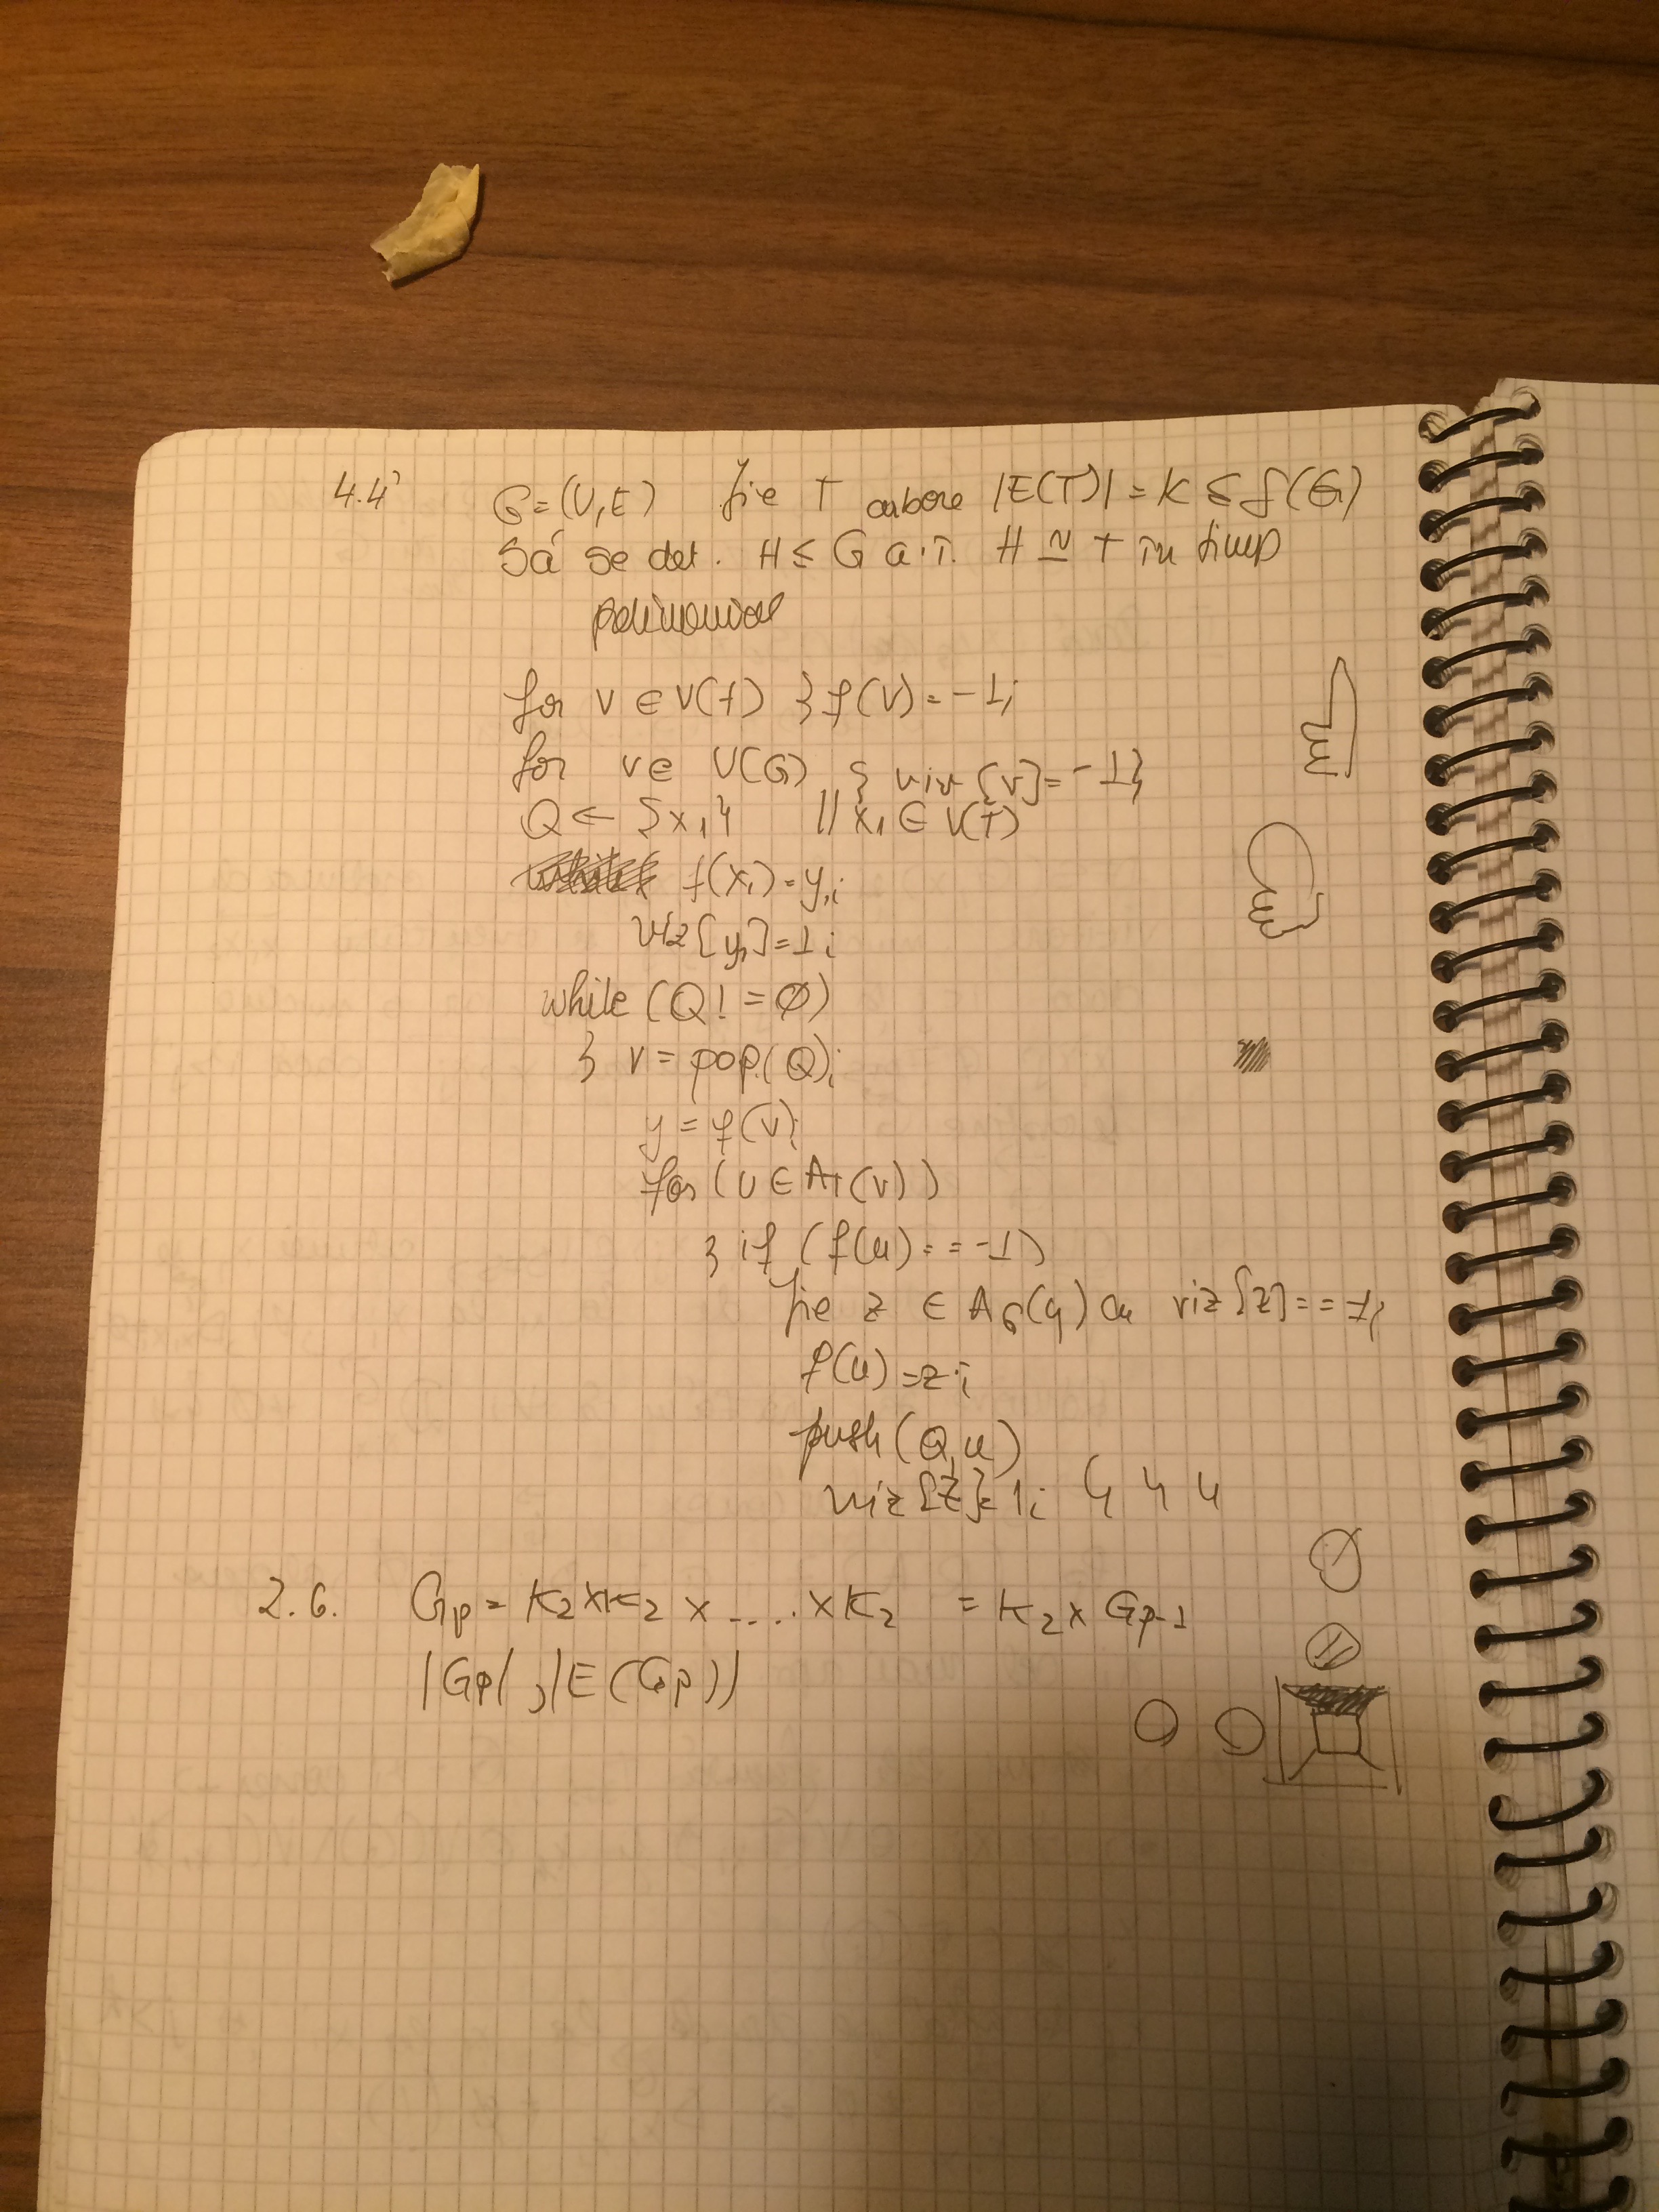 4.4' G=(V,E) fie T arbore |E(T)| = K ≤ δ(G)
Să se det. H ≤ G a.î. H ≃ T în timp
polinomial
for v ∈ V(T) { f(v) = -1;
for v ∈ V(G) { viz[v] = -1}
Q ← {x₁} // x₁ ∈ V(T)
f(x₁) = y₁;
viz[y₁] = 1;
while (Q != ∅)
{ v = pop(Q);
y = f(v);
for (u ∈ A_T(v))
{ if (f(u) == -1)
fie z ∈ A_G(y) cu viz[z] == -1;
f(u) = z;
push(Q,u)
viz[z] = 1; } } }
2.6. Gp = K₂ × K₂ × .... × K₂ = K₂ × Gp-1
|Gp|, |E(Gp)|